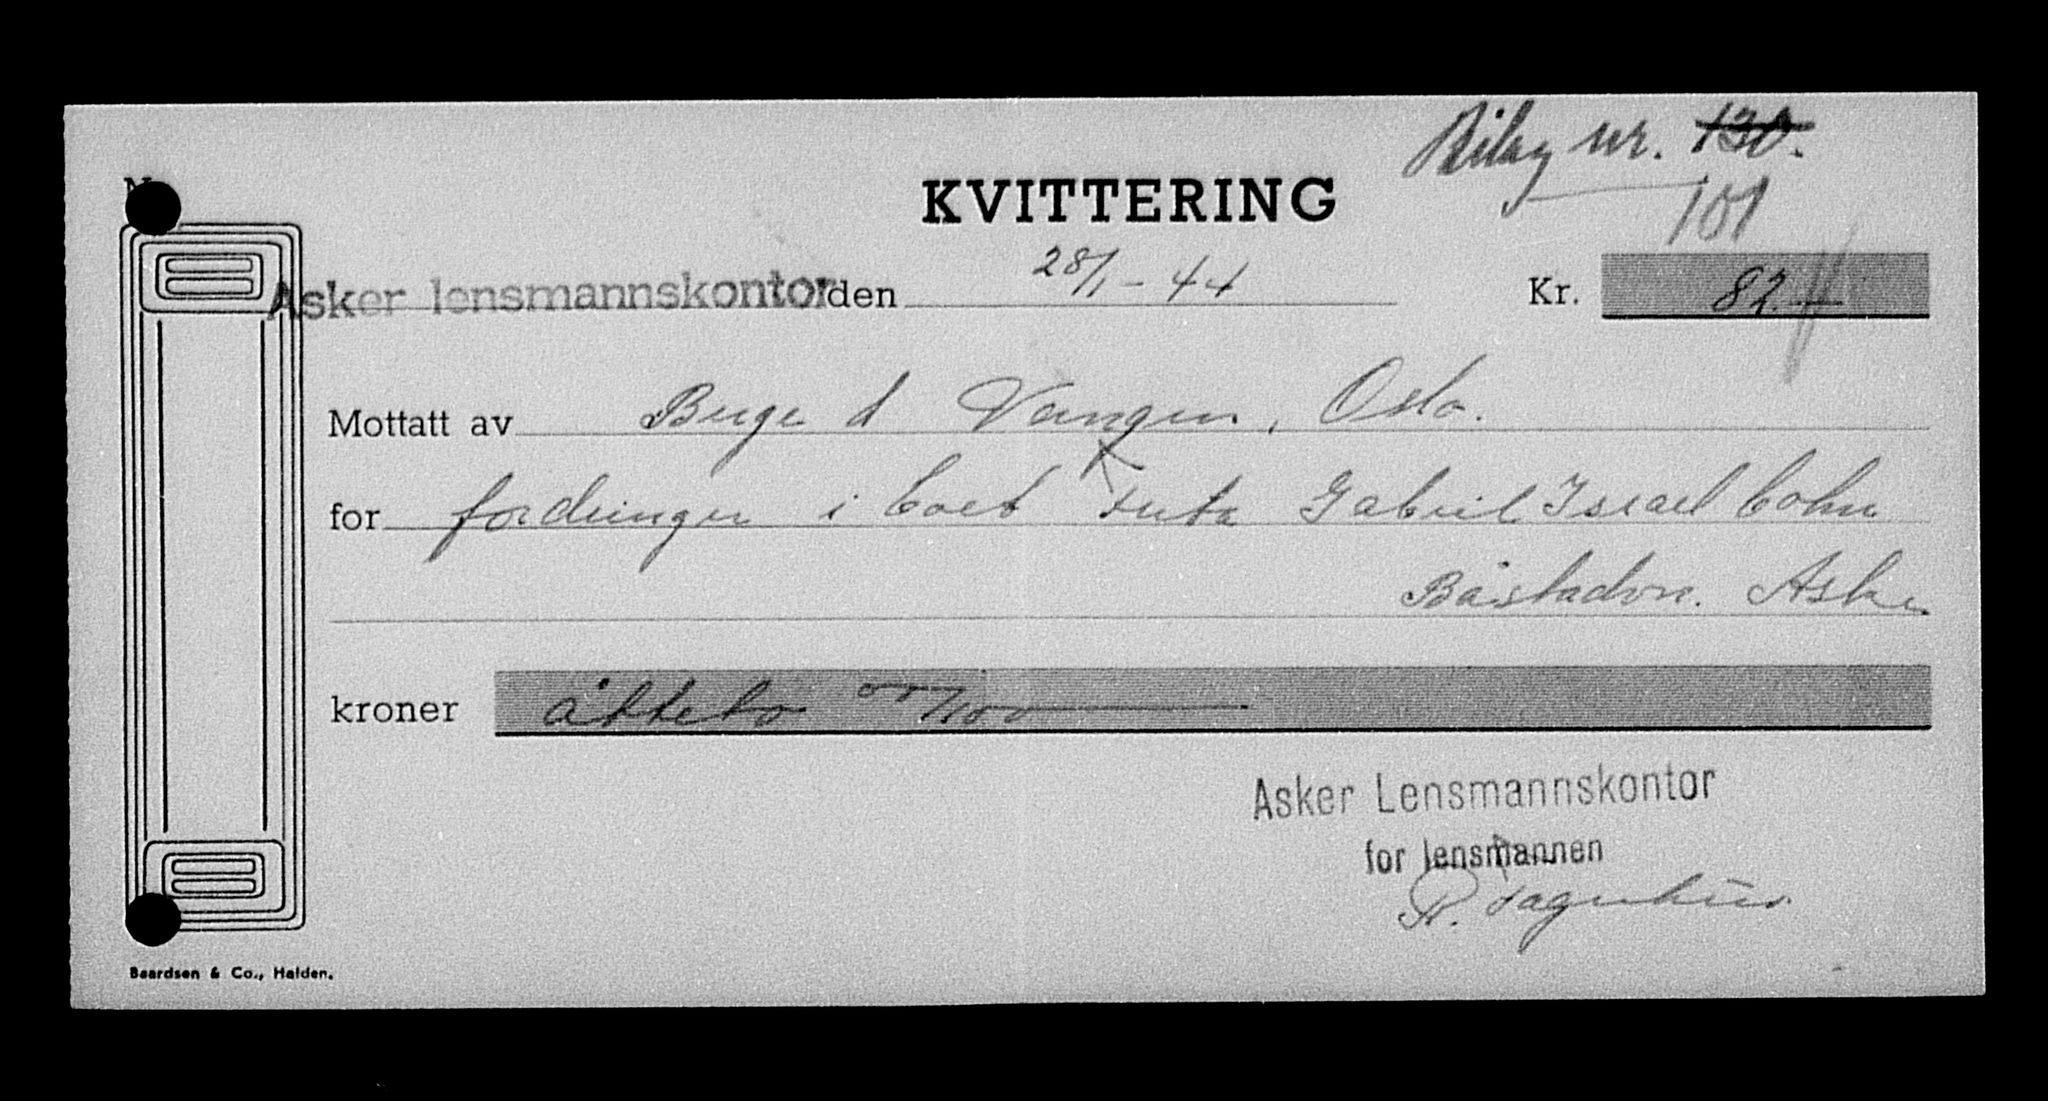 Bilag nr. 130.
101
KVITTERING
Asker lensmannskontor den 28/1-44 Kr. 82.-
Mottatt av Berge & Vangen, Oslo.
for fordringer i boet Gabriel Israel Cohn
Båstadvn. Asker
kroner åtteto 00/100
Asker Lensmannskontor
for lensmannen
Baardsen & Co., Halden.